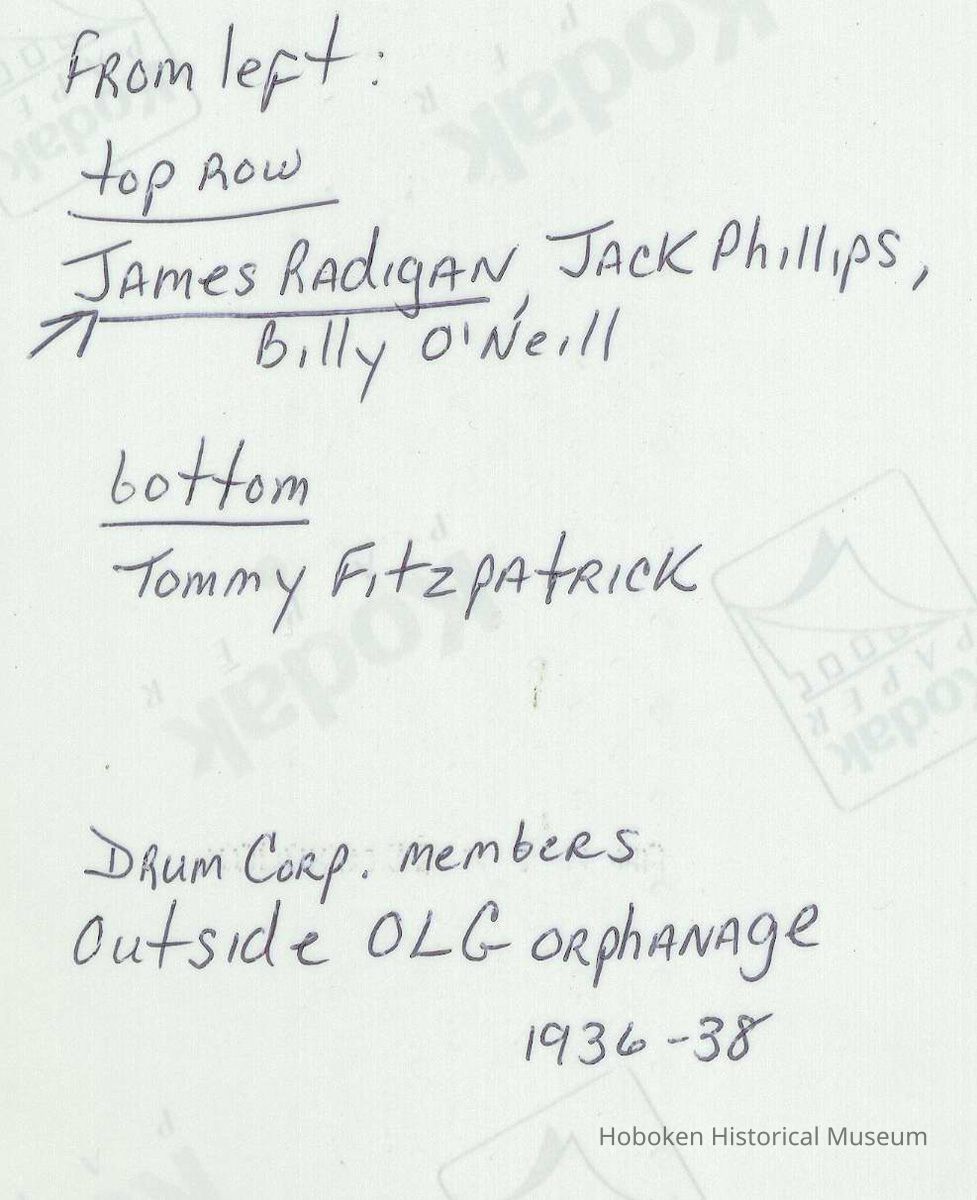 From left:
top row
James Radigan, Jack Phillips,
Billy O'Neill
bottom
Tommy Fitzpatrick
Drum Corp. members
Outside OLG orphanage
1936-38
Kodak
PAPER
Kodak
PAPER
Kodak
Hoboken Historical Museum